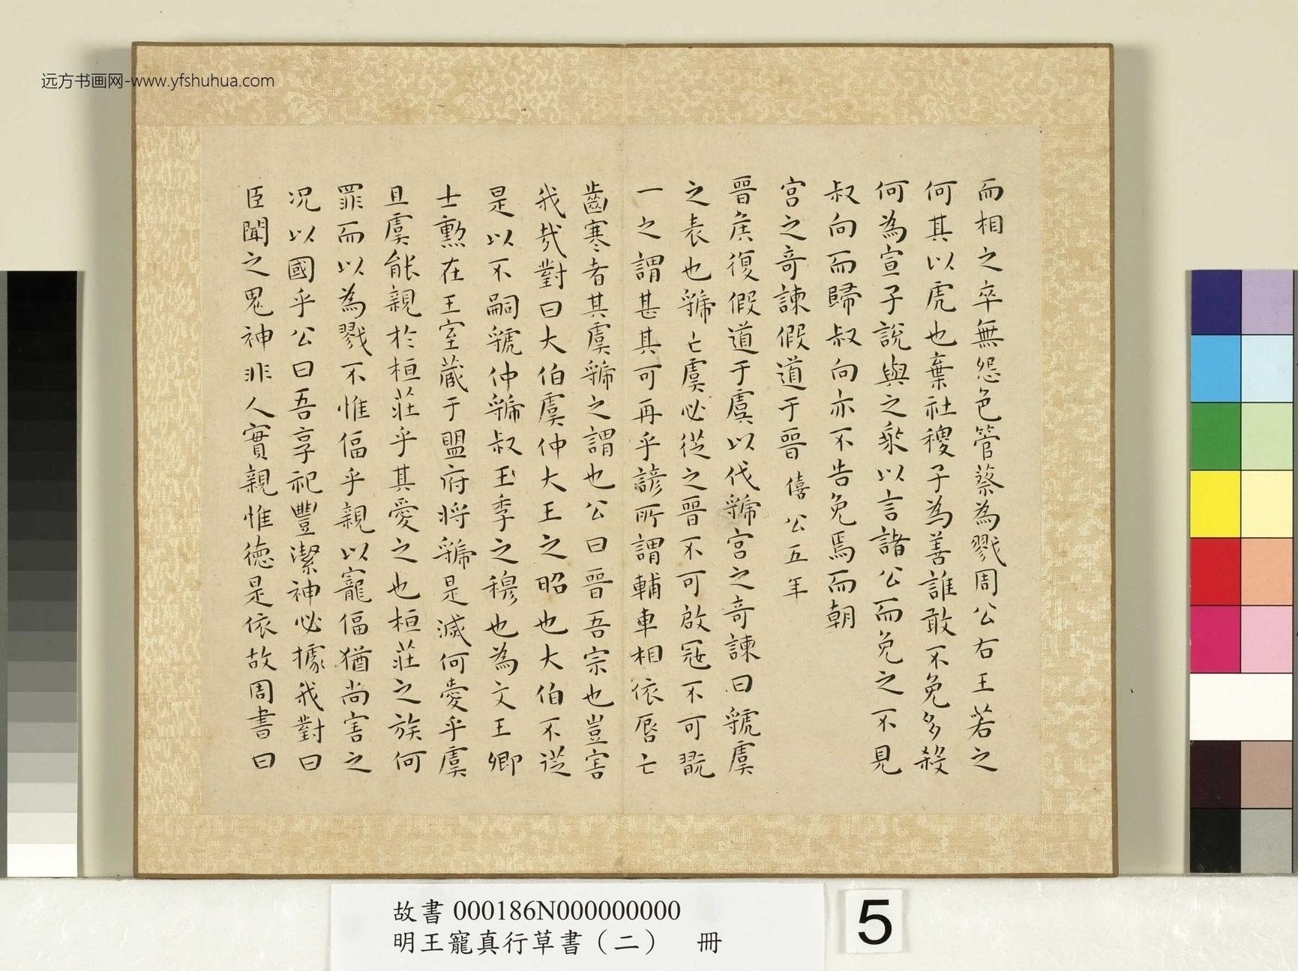 远方书画网-www.yfshuhua.com
而相之卒無怨色管蔡為戮周公右王若之
何其以虎也棄社稷子為善誰敢不免多殺
何為宣子說與之乘以言諸公而免之不見
叔向而歸叔向亦不告免焉而朝
宮之奇諫假道于晉 僖公五年
晉侯復假道于虞以伐虢宮之奇諫曰虢虞
之表也虢亡虞必從之晉不可啟寇不可翫
一之謂甚其可再乎諺所謂輔車相依唇亡
齒寒者其虞虢之謂也公曰晉吾宗也豈害
我哉對曰大伯虞仲大王之昭也大伯不從
是以不嗣虢仲虢叔王季之穆也為文王卿
士勲在王室蔵于盟府將虢是滅何愛乎虞
且虞能親於桓莊乎其愛之也桓莊之族何
罪而以為戮不惟偪乎親以寵偪猶尚害之
况以國乎公曰吾享祀豐潔神必據我對曰
臣聞之鬼神非人實親惟德是依故周書曰
故書 000186N000000000
明王寵真行草書（二） 冊
5